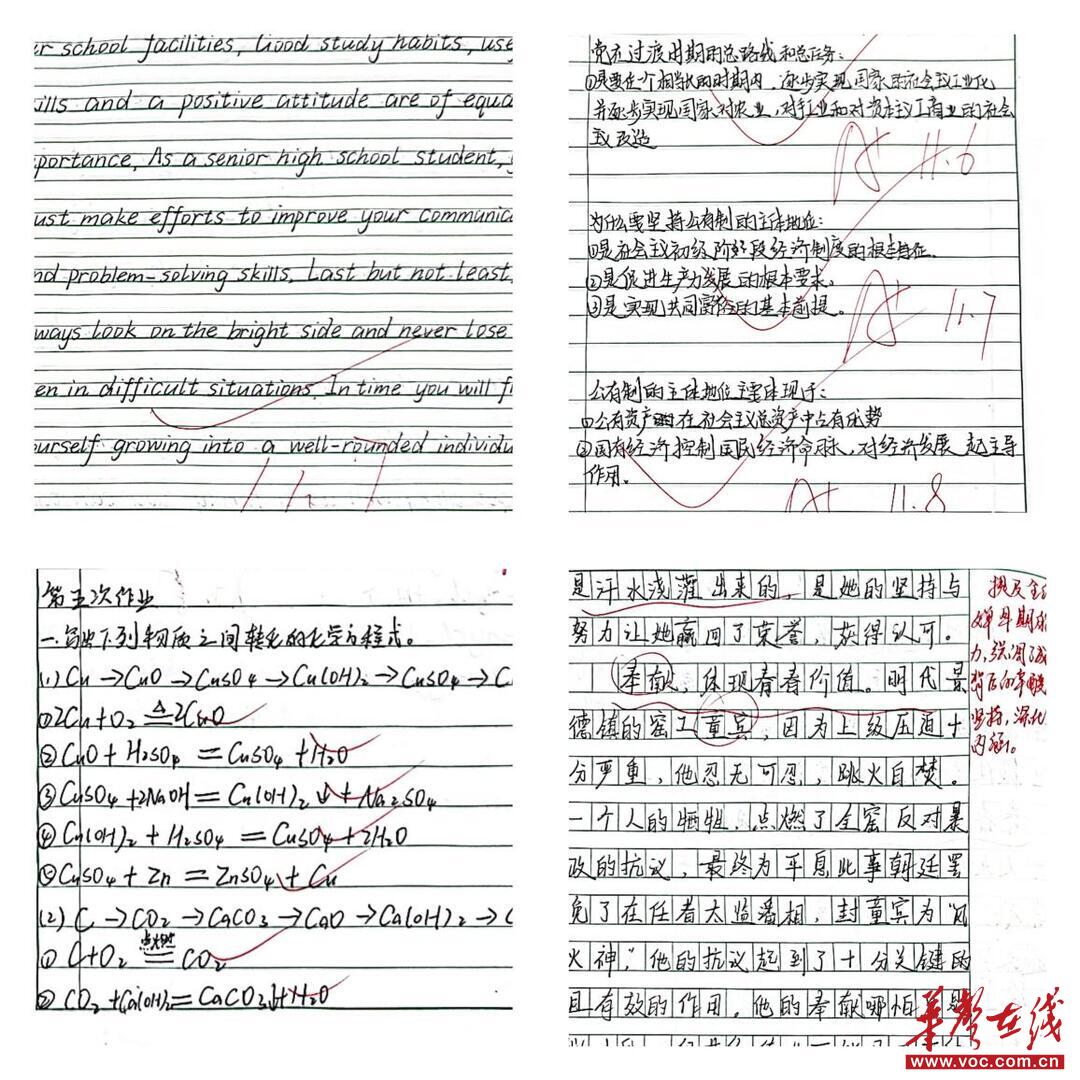 ur school facilities, Good study habits, use
ills and a positive attitude are of equa
portance, As a senior high school student,
ust make efforts to improve your communic
nd problem-solving skills. Last but not least,
ways look on the bright side and never lose
en in difficult situations. In time you will f
ourself growing into a well-rounded individu
11.7
党在过渡时期的总路线和总任务:
①是要在一个相当长的时期内,逐步实现国家的社会主义工业化
并逐步实现国家对农业,对手工业和对资本主义工商业的社会
主义改造
A+ 11.6
为什么要坚持公有制的主体地位:
①是社会主义初级阶段经济制度的根本特征.
②是促进生产力发展的根本要求,
③是实现共同富裕的基本前提。
A+ 11.7
公有制的主体地位主要体现于:
①公有资产在社会主义总资产中占有优势
②国有经济控制国民经济命脉,对经济发展起主导
作用。
A+ 11.8
第五次作业
一.写出下列物质之间转化的化学方程式。
(1) Cu→CuO→CuSO4→Cu(OH)2→CuSO4→C
①2Cu+O2 △ 2CuO
②CuO+H2SO4=CuSO4+H2O
③CuSO4+2NaOH=Cu(OH)2↓+Na2SO4
④Cu(OH)2+H2SO4=CuSO4+2H2O
⑤CuSO4+Zn=ZnSO4+Cu
(2) C→CO2→CaCO3→CaO→Ca(OH)2→C
①C+O2 点燃 CO2
②CO2+Ca(OH)2=CaCO3↓+H2O
是汗水浇灌出来的,是她的坚持与
努力让她赢回了荣誉,获得认可。
奉献,体现青春价值。明代景
德镇的窑工童宾,因为上级压迫十
分严重,他忍无可忍,跳火自焚。
一个人的牺牲,点燃了全窑反对暴
政的抗议,最终为平息此事朝廷罢
免了在任者太监潘相,封童宾为“风
火神,”他的抗议起到了十分关键的
且有效的作用,他的奉献哪怕是
提及全
婵早期
力,强调了成
背后的辛酸
坚持,深化
内涵。
华声在线
www.voc.com.cn